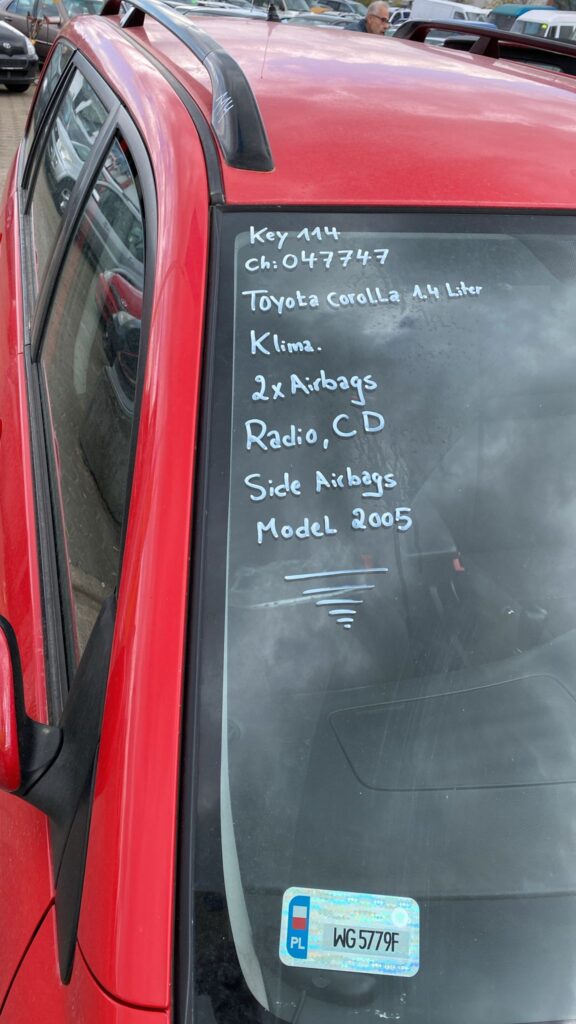 114
Key 114
Ch: 047747
Toyota Corolla 1.4 Liter
Klima.
2x Airbags
Radio, CD
Side Airbags
Model 2005
PL WG 5779F